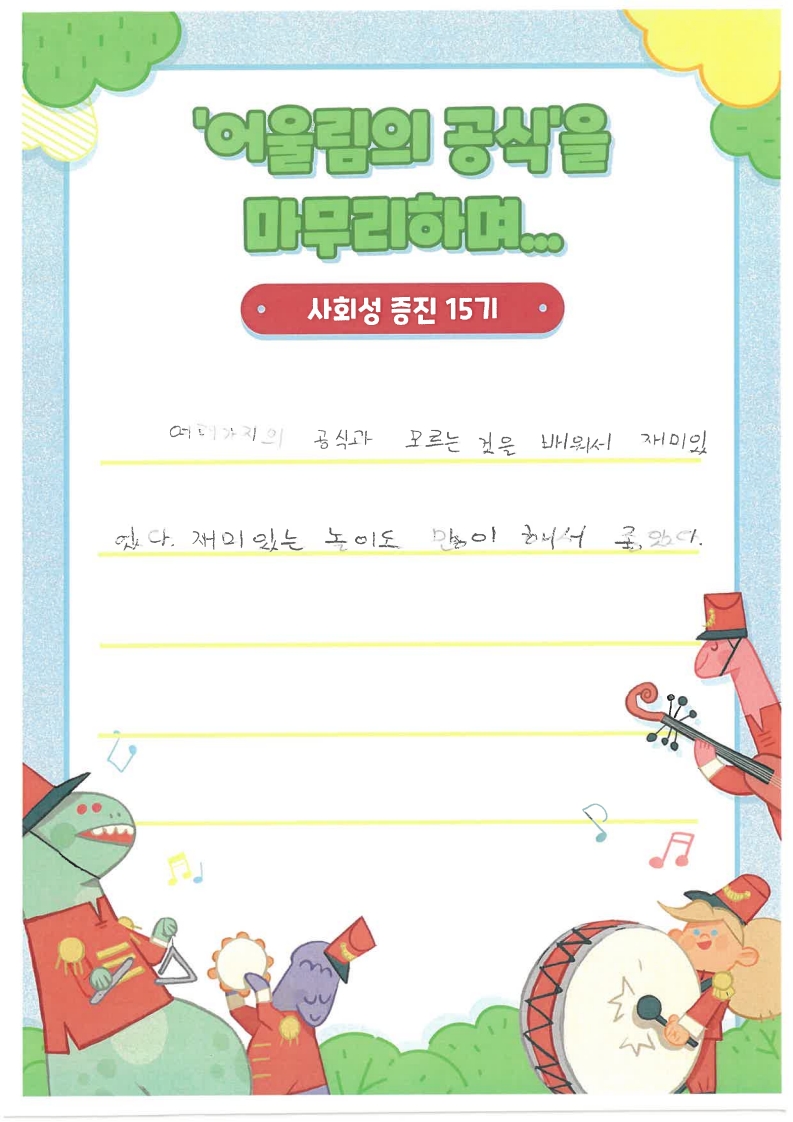 '어울림의 공식'을
마무리하며...
사회성 증진 15기
여러가지의 공식과 모르는 것을 배워서 재미있
었다. 재미있는 놀이도 많이 해서 좋았다.